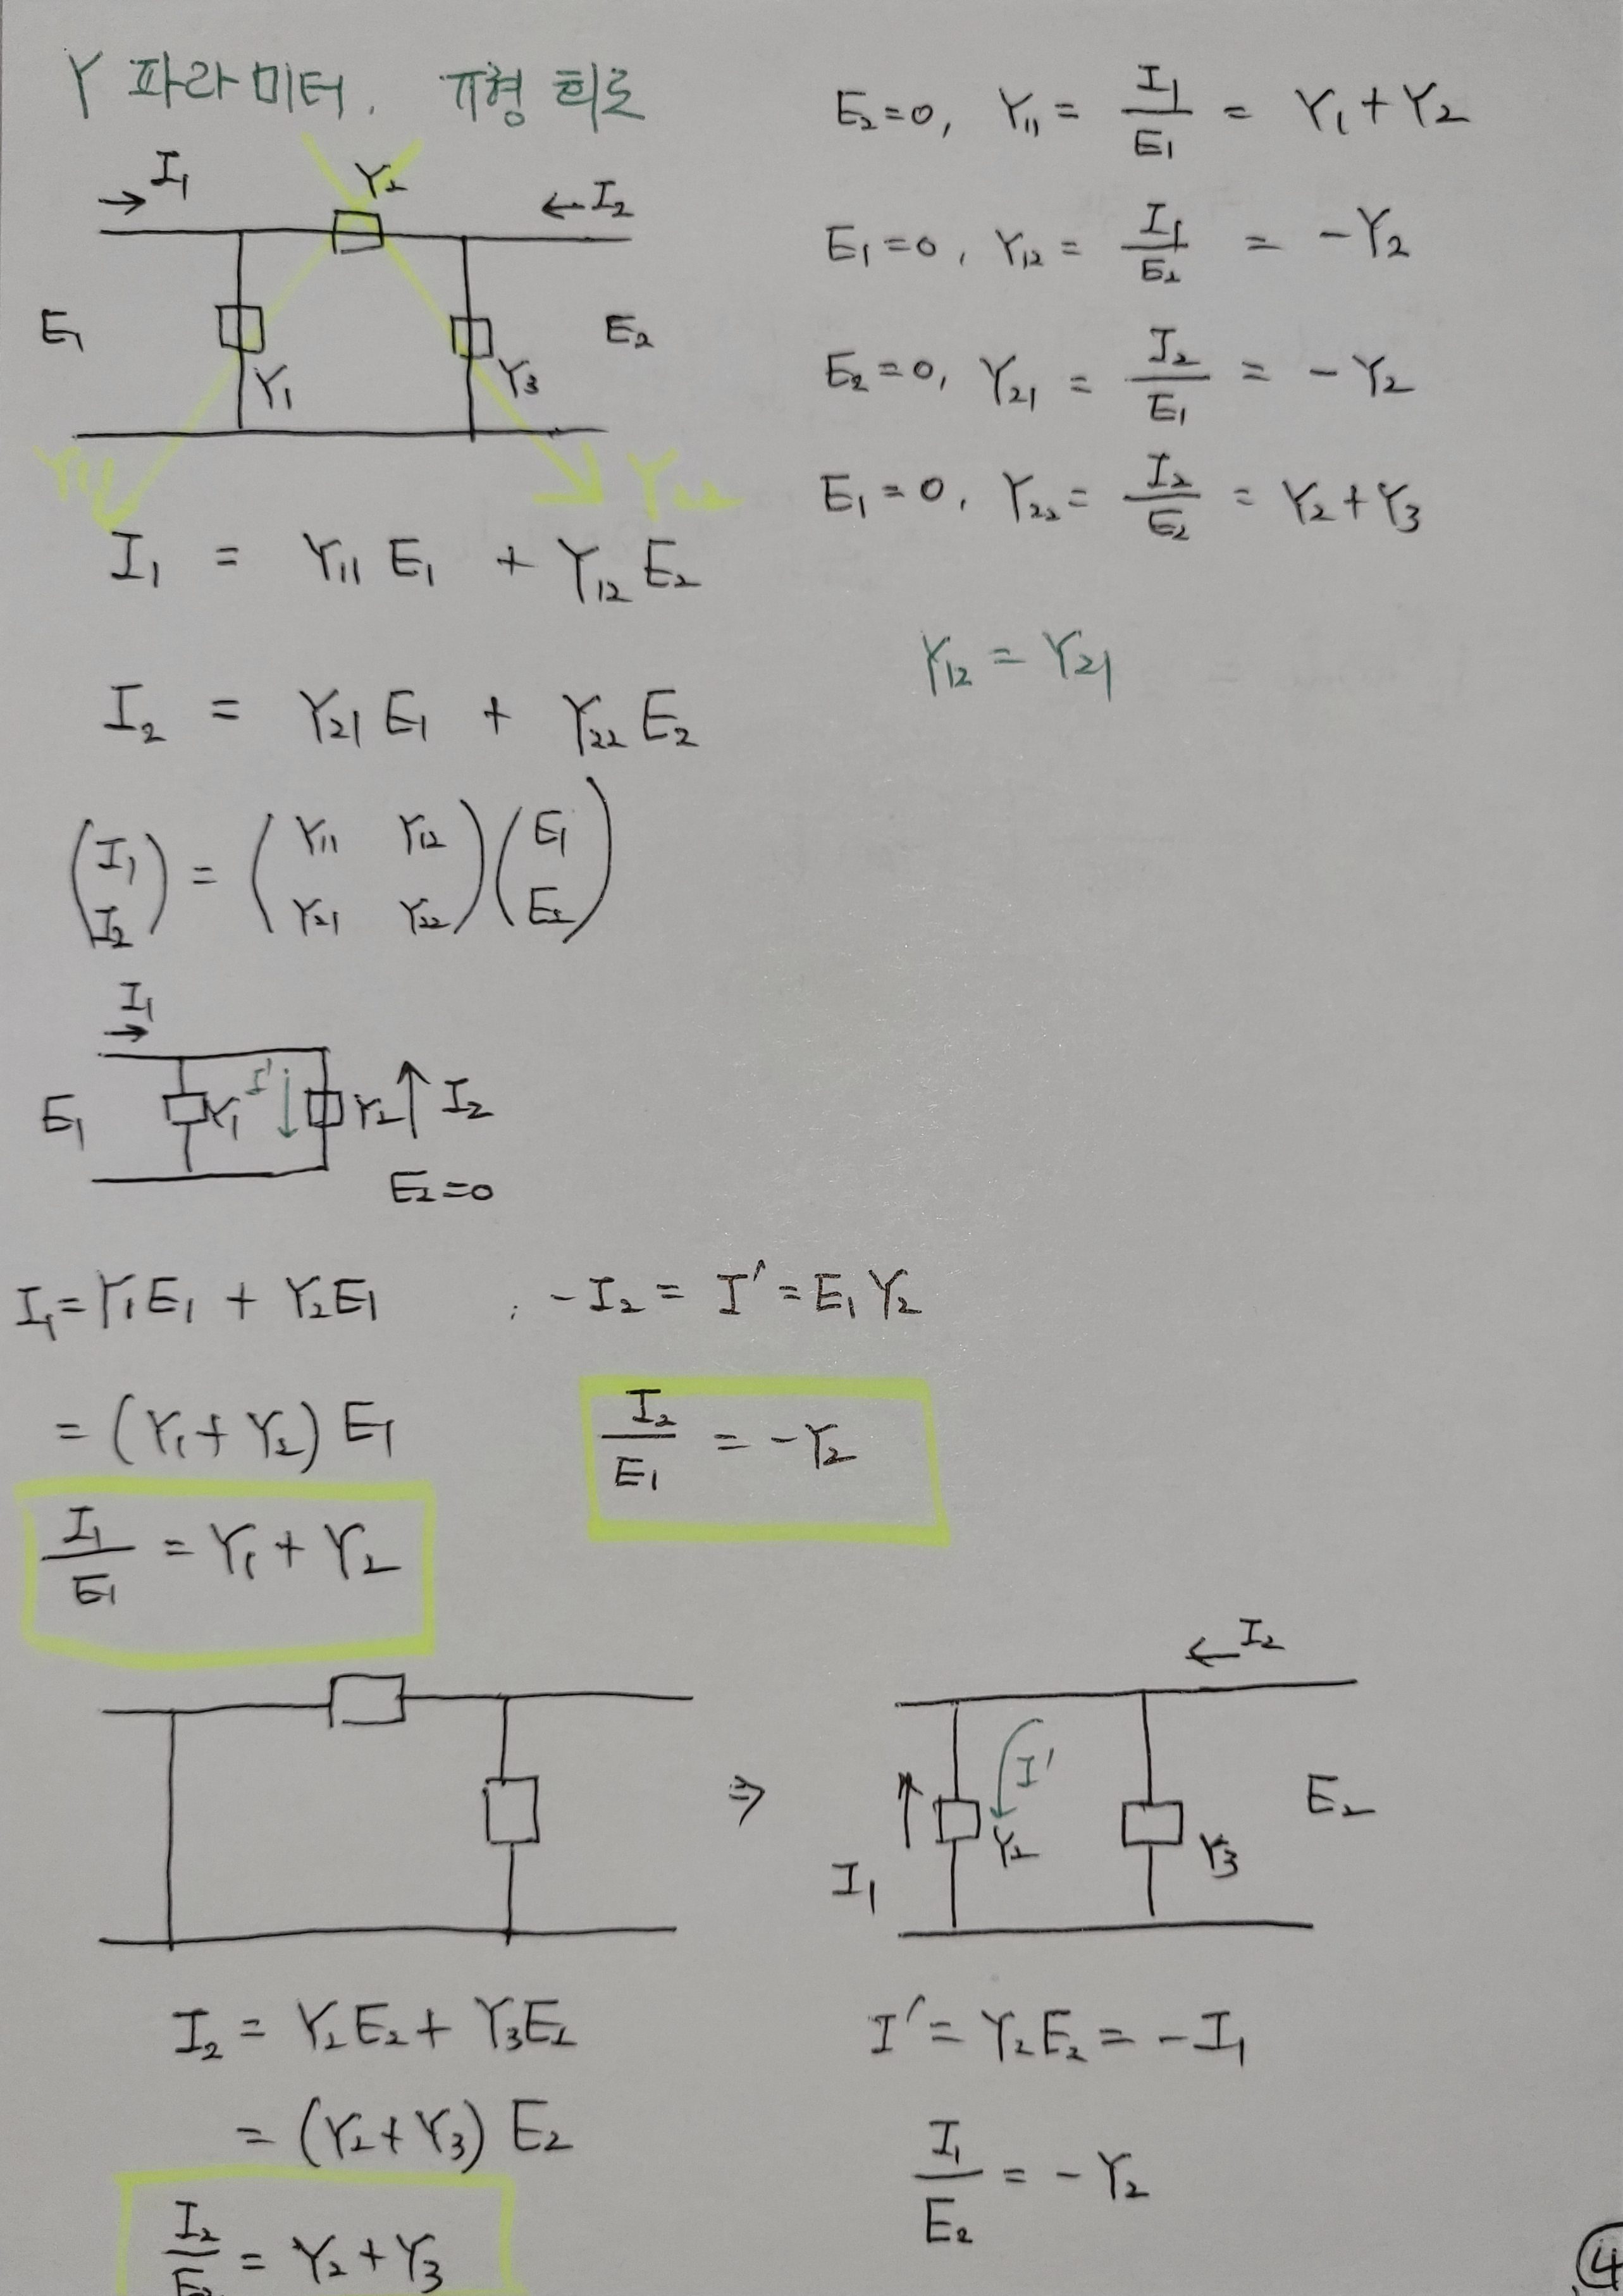 Y 파라미터, π형 회로
I₁
Y₂
←I₂
E₁
Y₁
Y₃
E₂
Y₁₁
Y₂₂
I₁ = Y₁₁ E₁ + Y₁₂ E₂
I₂ = Y₂₁ E₁ + Y₂₂ E₂
(I₁ I₂) = (Y₁₁ Y₁₂ Y₂₁ Y₂₂)(E₁ E₂)
E₂=0, Y₁₁ = I₁/E₁ = Y₁+Y₂
E₁=0, Y₁₂ = I₁/E₂ = -Y₂
E₂=0, Y₂₁ = I₂/E₁ = -Y₂
E₁=0, Y₂₂ = I₂/E₂ = Y₂+Y₃
Y₁₂ = Y₂₁
I₁
E₁
Y₁
I'↓
Y₂
↑I₂
E₂=0
I₁=Y₁E₁ + Y₂E₁
= (Y₁+Y₂) E₁
I₁/E₁ = Y₁+Y₂
-I₂ = I' = E₁Y₂
I₂/E₁ = -Y₂
⇒
←I₂
I'
I₁
Y₂
Y₃
E₂
I₂ = Y₂E₂ + Y₃E₂
= (Y₂+Y₃) E₂
I₂/E₂ = Y₂+Y₃
I' = Y₂E₂ = -I₁
I₁/E₂ = -Y₂
④